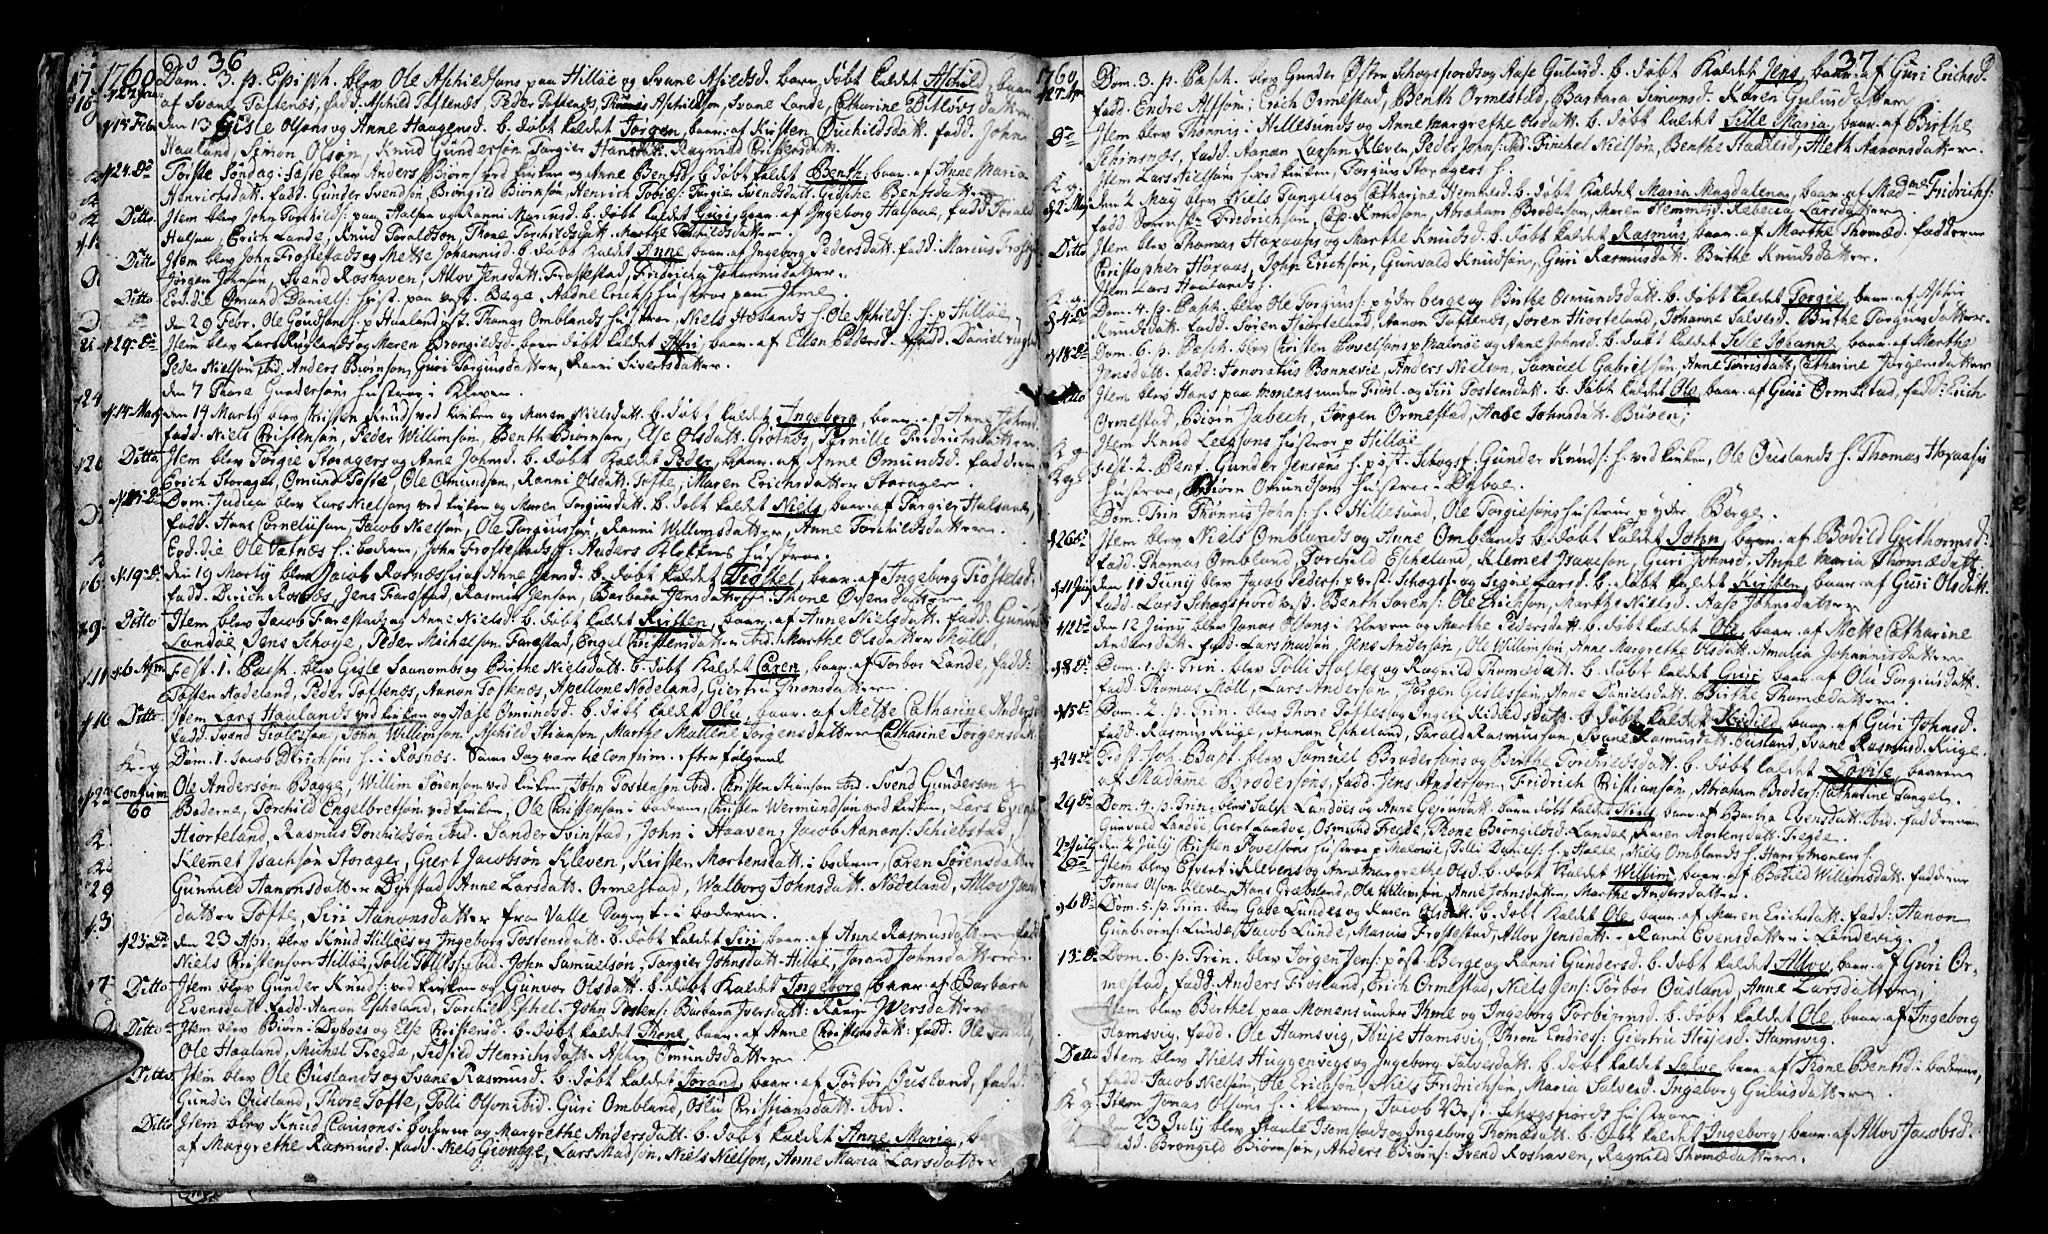 36
1760
Dom. 3. p. Epiph. blev Ole Aschildsens paa Hilløe og Svane Aslesd. barn døbt kaldet Aschild, baaren
af Svane Toftenæs, fad. Aschild Toftenæs, Peder Toftenæs, Aschildsøn, Svane Lande, Catharine
den 13 Gisle Olsøns og Anne Haagensd. b. døbt kaldet Jørgen, baar. af Kirsten fadd. John
Haaland, Simon Olsøn, Knud Gundersøn Torgier Hansdatt. Ragnild Erichsdatt.
24 Do Første Søndag i Faste blev Anders Biørn ved kirken og Anne Bentsd. b. døbt kaldet Benth, baar. af Anne Maria
Henrichsdatt. fadd. Gunder Svendsøn Brøngild Biørnsøn, Henrich Tobiæs: Targier Svendsdatt. Gidske Bentsdatter
Ditto Item blev John Torchilds: paa Halsen og Ranni Mariusd. b. døbt kaldet Guri, baar. af Ingeborg Halsaae, fadd. Torald
Halsaa, Erich Lande, Knud Toraldsøn, Thone Torchildsdatt. Marthe Torchildsdatter.
Ditto Item blev John Frøstestads og Mette Johannisd. b. døbt kaldet Anne, baar. af Ingeborg Pedersdatt. fadd. Marius
Jørgen Johnsøn, Svend Roshaven, Allov Jensdatt. Frøstestad, Fridricha Johannisdatter.
Ditto Eod. die Omund Daniels: hust. paa vest. Berge, Aadne Erichs: hustroe paa Ihme.
den 29 Febr. Ole Gundsøns h. p. Haaland, Thomas Omblands hustroe, Niels Høslands h. Ole Aschilds: h. p. Hilløe.
29 Do Item blev Lars Ruglands og Maren Brøngildsd. barn døbt kaldet Asbri, baar. af Ellen Pedersd. fadd. Daniel
Peder Nielsøn ibid. Anders Biørnsøn, Guri Torgiusdatter, Ranni Sivertsdatter.
den 7 Thore Gundersøns hustroe i Kleven.
14 Marty den 14 Marty blev Kristen Knuds ved kirken og Maren Nielsdatt. b. døbt kaldet Ingeborg, baar. af Anne
fadd. Niels Christensøn, Peder Willimsøn, Benth Biørnsøn, Else Olsdatt. Grotnæs, Pernille Fridrichsdatter
Ditto Item blev Torgie Storagers og Anne Johnsd. b. døbt kaldet Peder, baar. af Anne Omundsd. fadderne
Erich Storager, Omund Tofte, Ole Omundsøn, Ranni Olsdatt. Tofte, Maren Erichsdatter Storager.
Dom. Judica blev Lars Nielsøns ved kirken og Maren Torgiusdatt. b. døbt kaldet Niels baar. af Targier Halsaae,
fadd. Hans Corneliusøn, Jacob Nielsøn, Ole Torgiussøn, Ranni Willumsdatter, Anne Torchildsdatter
Eod. die Ole Valnæs h. i boderne, John Frøstestads h: Anders Klokkers hustroe.
19 den 19 Marty blev Jacob Rosnæs hus og Anne Jensd. b. døbt kaldet Trøstel, baar. af Ingeborg Trøstelsd.
fadd. Dirich Rosnæs, Jens Farestad, Rasmus Jensøn, Barbara Jensdatter, Thone Øvensdatter
Ditto Item blev Jacob Farestads og Anne Nielsd. b. døbt kaldet Kirsten, baar. af Anne Nielsdatt. fadd. Gunvald
Landøe, Jens Schoje, Peder Michelsøn Farestad, Engel Christensdatter ibid. Marthe Olsdatter Møll
6 Apr. Fest. 1. Pasch. blev Gisle Saanombs og Birthe Nielsdatt. b. døbt kaldet Caren, baar. af Torbor Lande, fadd:
Tosten Nodeland, Peder Toftenæs, Aanon Toftenæs, Apellone Nødeland, Giertru Thorsdatter
Ditto Item Lars Haalands ved kirken og Aase Omundsd. b. døbt kaldet Olu, baar. af Mette Catharine Anders
fadd. Svend Trolessøn, John Willimsøn, Aschild Stiansøn, Marthe Mallene Jørgensdatter Catharine Jørgensd.
Dom. 1. Jacob Dirichsøns h. i Rosnæs. Samme Dag vare til Confirm. efterfølgende
Confirm. 60
Ole Andersøn Bagge, Willim Sørensøn ved kirken, John Tostensøn ibid. Christen Stiansøn ibid. Svend Gundersøn
Boderne, Torchild Engelbretsøn ved kirken, Ole Christensøn i boderne, Christen Wermundsøn ved kirken, Lars Evens
Hiorteland, Rasmus Torchildsøn ibid. Sander Svinstad, John i Haaven, Jacob Aanons: Schiebstad,
Klemet Isachsøn Storager, Giert Jacobsøn Kleven, Kirsten Mortensdatt. i boderne, Caren Sørensdatter
Gunnild Aanonsdatter Dyrstad, Anne Larsdatt. Ormestad, Walborg Johnsdatt. Nødeland, Allov
datter Tofte, Siri Aanonsdatter fra Valle Sogn i boderne.
23 den 23 Apr. blev Knud Hilløes og Ingeborg Tostensdatt. b. døbt kaldet Siri, baar. af Anne Rasmusdatter
Niels Christensøn Hilløe, Tolli Tollis: ibid. John Samuelsøn, Torgier Johnsdatt. Hilløe, Jorand Johnsdatter
Ditto Item blev Gunder Knuds: ved kirken og Gunvor Olsdatt. b. døbt kaldet Ingeborg baar. af Barbara
Evensdatt. fadd. Aanon Escheland, Torchild Eschel. John Tostens: Barbara Iversdatt. Karen Iversdatter
Ditto Item blev Biørn Dyboes og Else Christensd. b. døbt kaldet Thone, baar. af Anne Christensdatt. fadd. Ole
Ole Haaland, Michel Tregde, Sidsel Henrichsdatt. Aschier Omundsdatter
Ditto Item blev Ole Ouslands og Svane Rasmusd. b. døbt kaldet Jorand, baar. af Torbor Ousland, fadd.
Gunder Ousland, Thore Tofte, Tolli Olsøn ibid. Guri Ombland, Oslu Christiansdatt. ibid.
Ditto Item blev Knud Clausøns i boderne og Margrethe Andersdatt. b. døbt kaldet Anne Maria,
af Margrethe Rasmusd. fadd. Niels Giønge, Lars Madsøn, Niels Nielsøn, Anne Maria Larsdatter
37
1760
27 Apr. Dom. 3. p. Pasch. blev Gunder Østen Schogsfiords og Aase Gulusd. b. døbt kaldet Jens, baar. af Guri Erichsd.
fadd: Endre Alfsøn, Erich Ormestad, Benth Ormestad, Barbara Simonsd. Karen Gulusdatter
Do Item blev Thønnis Hillesunds og Anne Margrethe Olsdatt. b. døbt kaldet Sille Maria, baar. af Birthe
Schinsnæs, fadd. Aanon Larsøn Kleven, Peder Johns: ibid. Finchel Nielsøn, Benthe Haalesd, Aleth Aanonsdatter.
K. g. Item Lars Nielsøns h. ved kirken, Torgius Storagers h.
2 May den 2 May blev Niels Tangels og Catharine Hemmelsd. b. døbt kaldet Maria Magdalena, baar. af Madme Fridrichs:
fadd. Dorothe Fridrichsøn, Cap. Knudsøn, Abraham Brodersøn, Maren Hemmelsd. Rebecca Larsdatter.
Ditto Item blev Thomas Høxaas og Marthe Knudsd. b. døbt kaldet Rasmus, baar. af Marthe Thomæd. fadderne
Christopher Høxaas, John Erichsøn, Gunvald Knudsøn, Guri Rasmusdatt. Birthe Knudsdatter.
K. g. Item Lars Haalands h.
4 Do Dom. 4. p. Pasch. blev Ole Torgius: p. yder berge og Birthe Osmundsdatt. b. døbt kaldet Torgie, baar. af Aschier
Knudsdatt. fadd. Søren Hiorteland, Aanon Toftenæs, Søren Hiorteland, Johanne Salvesd. Birthe Torgiusdatter.
18 Do Dom. 6. p. Pasch. blev Christen Povelsøns p. Malmøe og Anne Johnsd. b. døbt kaldet Sille Johanne, baar. af Marthe
Jensdatt. fadd: Honoratus Bonnevie, Anders Nielsøn, Samuel Gabrielsøn, Anne Tørrisdatt. Catharine Jørgensdatter
Ditto Item blev Hans paa Monens under Fidsl. og Siri Tostensdatt. b. døbt kaldet Ole, baar. af Guri Ormestad, fadd: Erich
Ormestad, Biørn Jabech, Jørgen Ormestad, Aase Johnsdatt. Buøen;
K g. Item Knud Leessøns hustroe p. Hilløe
K g. Fest. 2. Pent. Gunder Jensøns h. p. øst. Schogsf. Gunder Knuds: h. ved kirken, Ole Ouslands h. Thomas Høxaases
Hustroe, Biørn Omundsøns hustroe Dyboe.
Dom. Trin. Thønnis Johns: h. Hillesund, Ole Torgiesøns hustroe p. yder Berge.
26 Do Item blev Niels Omblands og Anne Omblands b. døbt kaldet John baar. af Bodild Gutthormsd.
fadd. Thomas Ombland, Torchild Escheland, Klemet Isaacsøn, Guri Johnsd. Anne Maria Thomædatt.
11 Juny den 11 Juny blev Jacob Peders: p. vest. Schogsf. og Signe Larsd. b. døbt kaldet Kirsten, baar. af Guri Olsdatt.
fadd. Lars Schogsfiord vest. Benth Sørens: Ole Erichsøn, Marthe Nielsd. Aase Johnsdatter
12 Do den 12 Juny blev Jonas Olsøns i Kleven og Marthe Pedersdatt. b. døbt kaldet Ole, baar. af Mette Catharine
Andersdatt. fadd. Lars Madsøn, Jens Andersøn, Ole Willimsøn, Anne Margrethe Olsdatt. Amalia Johannisdatter
8 Do Dom. 1. p. Trin. blev Tolli Holtes og Ragnild Thomædatt. b. døbt kaldet Guri, baar. af Oli Torgiusdatt.
fadd. Thomas Møll, Lars Andersøn, Jørgen Gislesøn, Anne Danielsdatt. Birthe Thomædatter.
15 Do Dom. 2. p. Trin. blev Thore Toftes og Ingeri Kidildsdatt. b. døbt kaldet Bodild, baar. af Guri Johnsd.
fadd. Rasmus Kige, Aanon Escheland, Tarald Rasmussøn, Svane Rasmusdatt. Ousland, Svane Rasmusd. Kige.
24 Do Fest. Joh. Bapt. blev Samuel Brodersøns og Birthe Torchildsdatt. b. døbt kaldet Lovise, baaren
af Madame Brodersøns, fadd. Jens Andersøn, Fridrich Christiansøn, Abraham Broders: Catharine Tangel.
29 Do Dom. 4. p. Trin. blev Salve Landøes og Anne Gerundatt. barn døbt kaldet Niels, baar. af Barbra Evensdatt. ibid. fadderne
Gunvald Landøe, Giert Landøe, Osmund Tregde, Thone Brøngildsd. Landøe, Karen Mortensdatt. Tregde.
2 July den 2 July Christen Povelsøns hustroe p. Malmøe, Tolli Daniels: h. p. Holte, Niels Omblands h. Hans p. Monens h.
Do Item blev Evert i Klevens og Anne Margrethe Olsd. b. døbt kaldet Willim, baar. af Bodild Willimsdatt. fadderne
Jonas Olsøn Kleven, Hans Græbsland, Ole Willimsøn, Anne Johnsdatter, Marthe Andersdatter.
6 Do Dom. 5. p. Trin. blev Gabe Lundes og Karen Olsdatt. b. døbt kaldet Ole, baar. af Maren Erichsdatt. fadd: Aanon
Gunbiorns: Lunde, Jacob Lunde, Marius Frøstestad, Allov Jensdatt. Ranni Evensdatter i Landevig.
13 Do Dom. 6. p. Trin. blev Jørgen Jens: p. øst. Berge og Ranni Gundersd. b. døbt kaldet Allov, baar. af Guri Or-
mestad, fadd. Anders Frosland, Erich Ormestad, Niels Jens: Torbor Ousland, Anne Larsdatter,
Item blev Berthel paa Monens under Ihme og Ingeborg Torbiørnsd. b. døbt kaldet Ole, baar. af Ingeborg
Hamsvig, fadd. Ole Hamsvig, Thije Hamsvig, Thron Endres: Giertru Heslesd. Hamsvig.
Ditto Item blev Niels Huggenvigs og Ingeborg Salvesdatt. b. døbt kaldet Salve baar. af Thone Bentsd: boderne,
fadd. Jacob Nielsøn, Ole Erichsøn Niels Fridrichsøn, Maria Salvesd. Ingeborg Gulusdatter.
K g. Item Jonas Olsøns h. i Kleven, Jacob Vest. Schogsfiords hustroe
den 23 July blev Staale Isemstads og Ingeborg Thomædatt. b. døbt kaldet Ingeborg, baar. af Allov Jacobsd.
fadd. Brøngild Biørnsøn, Anders Biørns: Svend Roshaven, Ragnild Thomædatter.